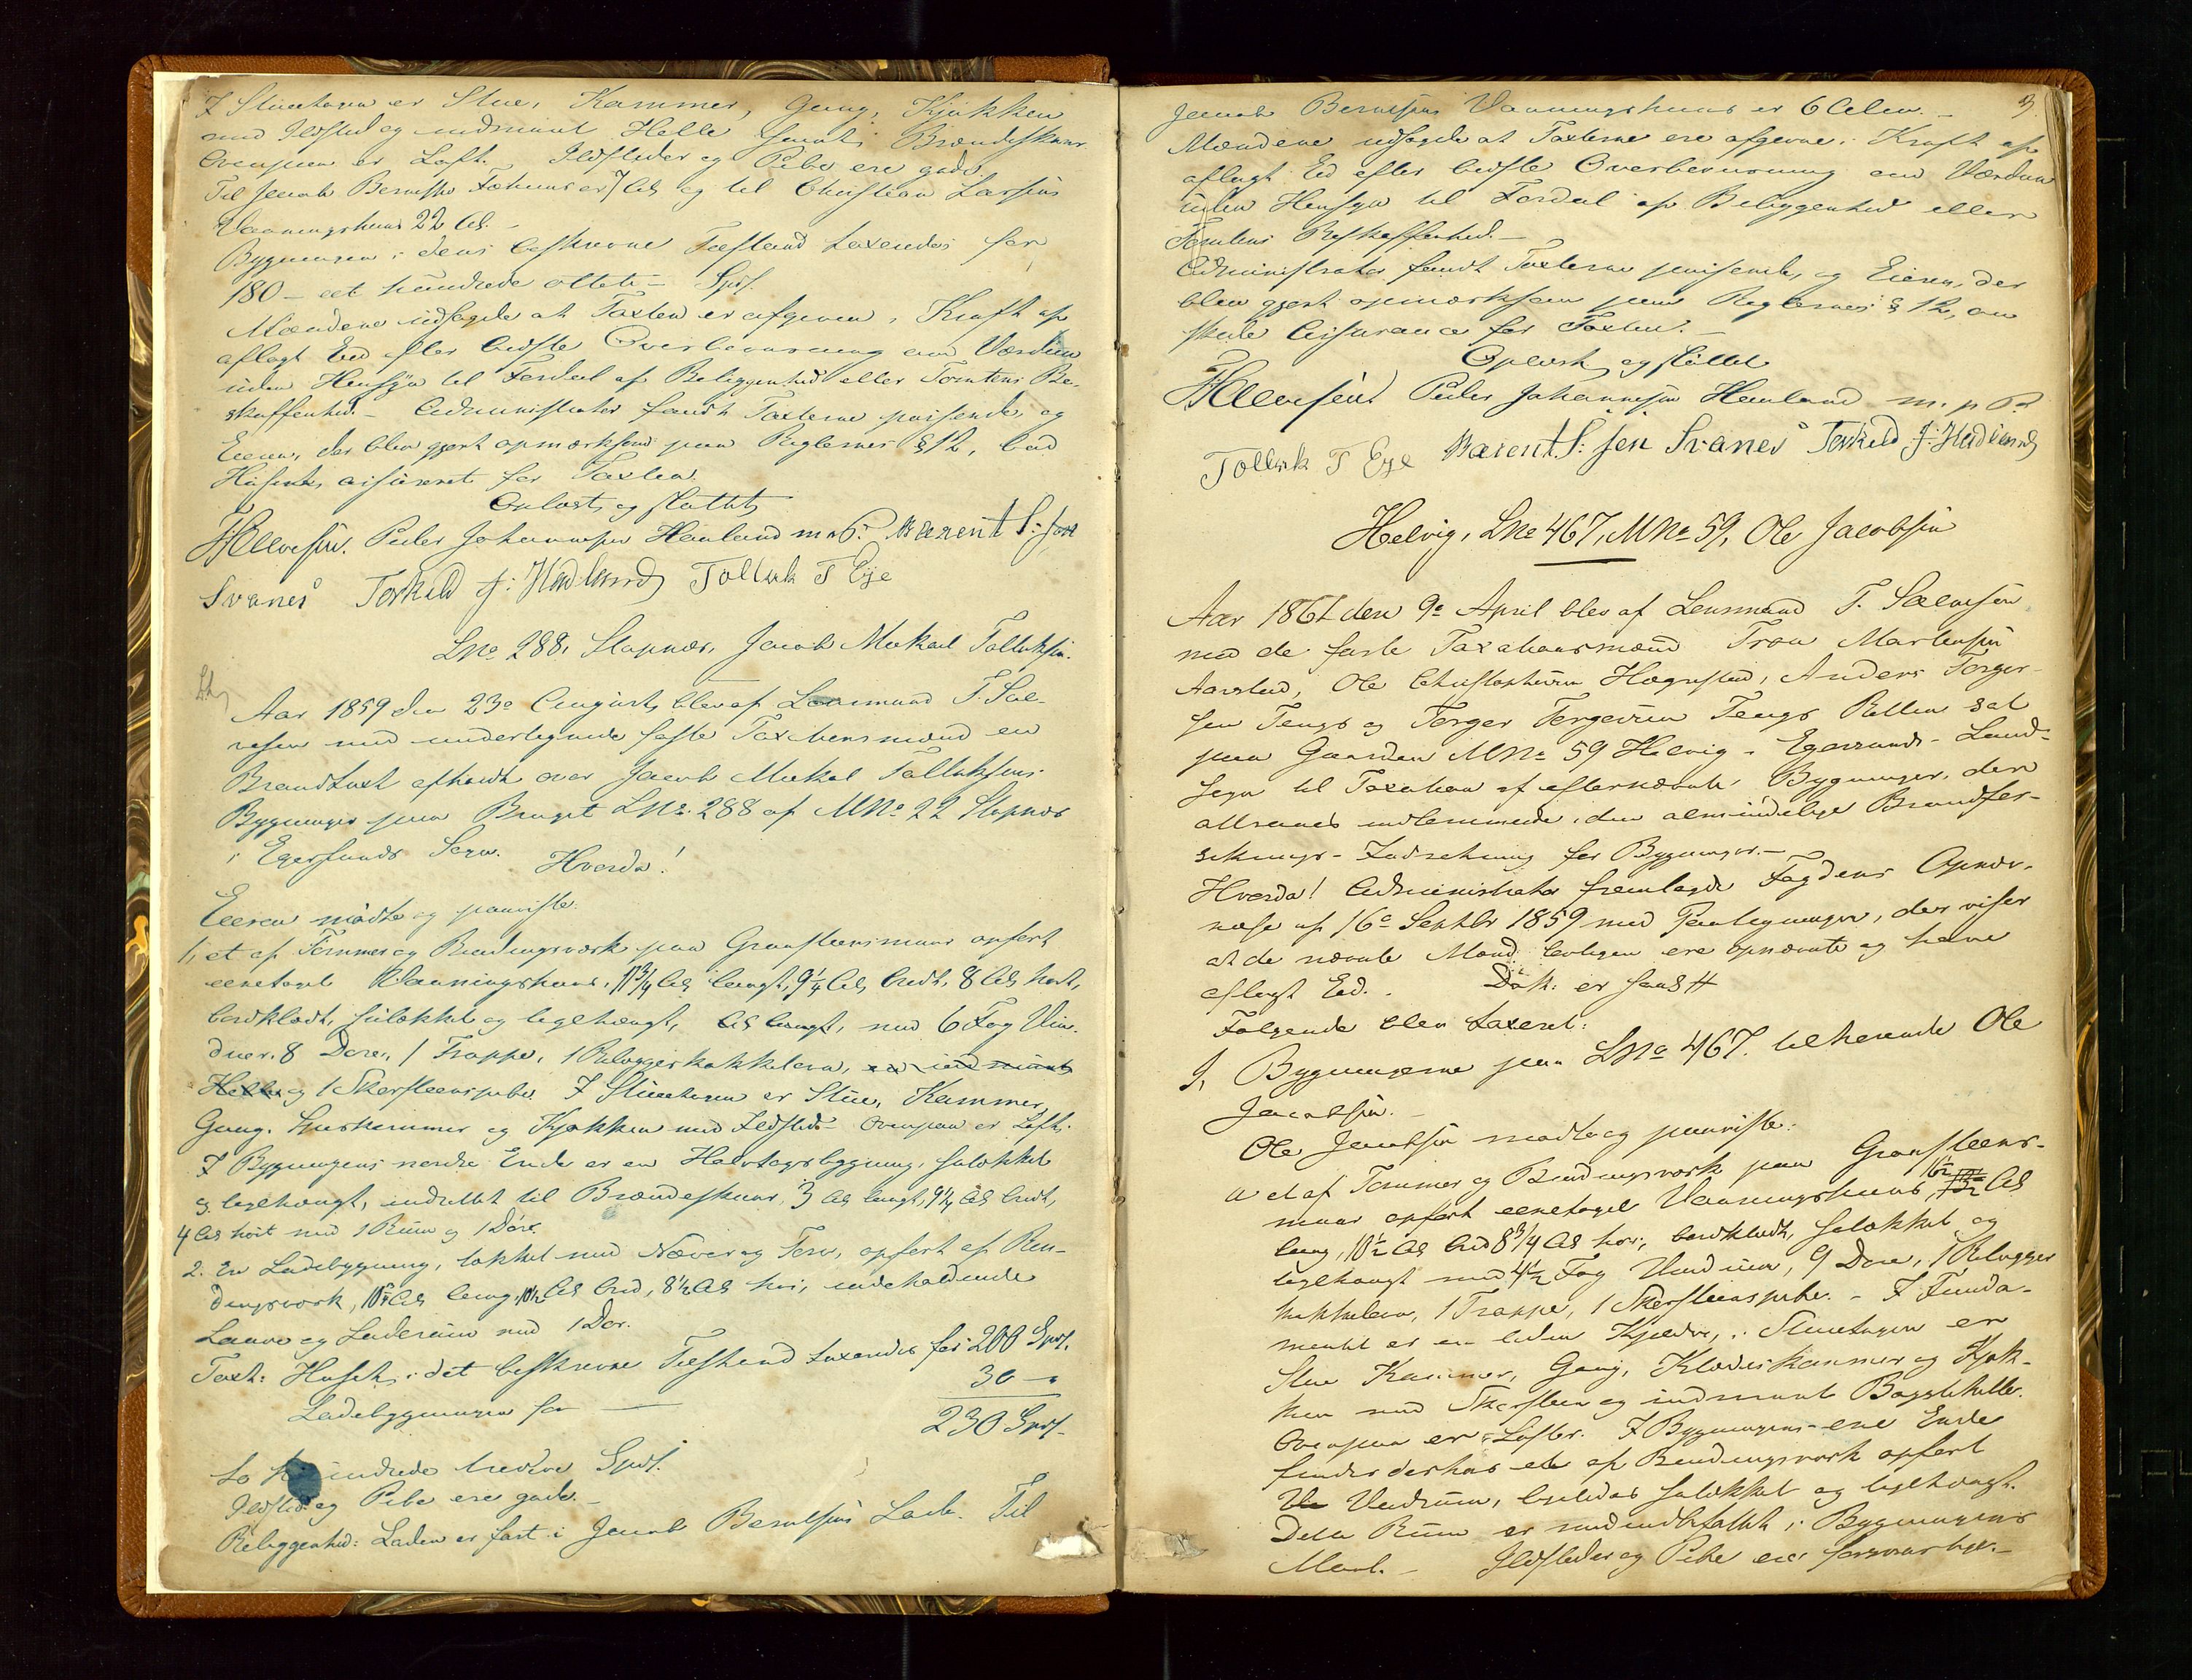 I Stueetagen er Stue, Kammer, Gang, Kjøkken
med Ildsted og indmuret Helle samt Brændeskuur
Ovenpaa er Loft. Ildsteder og Pibe ere gode.
Til Jacob Berentsens Fæhuus er 7 Al. og til Christian Larsens
Vaaningshuus 22 Al. -
Bygningen i dens beskrevne Tilstand taxeredes for
180 - eet hundrede otteti - Spd.
Mændene udsagde at Taxten er afgiven i Kraft af
aflagt Ed efter bedste Overbeviisning om Værdien
uden Hensyn til Fordeel af Beliggenhed eller Tomtens Be-
skaffenhed. - Administrator fandt Taxterne passende, og
Eieren, der blev gjort opmærksom paa Reglernes § 12, bad
Huset assureret for Taxten.
Oplæst og sluttet
TSalvesen. Peder Johannesen Hauland m. p. P. Barent S: sen
Svanes Torkild J: Hadland Tollak T Eye
LNo 288, Slapnæs, Jacob Mikael Tollaksen.
Aar 1859 den 23de August, blev af Lensmand T. Sal-
vesen med undertegnede faste Taxationsmænd en
Brandtaxt afholdt over Jacob Mikal Tollaksens
Bygninger paa Bruget LNo. 288 af MNo 22 Slapnæs
i Egersunds Sogn. Hvorda!
Eieren mødte og paaviste:
1, et af Tømmer og Bindingsværk paa Graasteensmuur opført
eenetages Vaaningshuus, 11 3/4 Al. langt, 9 1/4 Al. bredt, 8 Al. høit,
bordklædt, sulækket og teglhængt, Al langt, med 6 Fag Vin-
duer. 8 Døre, 1 Trappe, 1 Bilæggerkakkelovn, en indmuret
Helle og 1 Skorsteenspibe I Stueetagen er Stue, Kammer,
Gang, Spiskammer og Kjøkken med Ildsted - Ovenpaa er Loft.
I Bygningens nordre Ende er en Halvtagsbygning, sulækket
og teglhængt, indrettet til Brændeskuur, 3 Al. langt, 9 1/4 Al. bredt,
4 Al. høit med 1 Rum og 1 Dør.
2. En Ladebygning, takket med Næver og Torv, opført af Bin-
dingsværk, Al. lang, 10 1/2 Al. bred, 8 1/2 Al. høi, indeholdende
Laave og Laderum med 1 Dør.
Taxt: Huset i det beskrevne Tilstand taxeredes for 200 Spd.
Ladebygningen for — 30 -
230 Spd.
to hundrede tredive Spd.
Ildsted og Pibe ere gode. -
Beliggenhed: Laden er fast i Jacob Berentsens Lade. Til
3.
Jacob Berentsens Vaaningshuus er 6 Alen. -
Mændene udsagde at Taxterne ere afgivne i Kraft af
aflagt Ed efter bedste Overbeviisning om Værdien
uden Hensyn til Fordeel af Beliggenhed eller
Tomtens Beskaffenhed. -
Administrator fandt Taxterne passende, og Eieren, der
blev gjort opmærksom paa Reglernes § 12, om
skede Assurance for Taxten. -
Oplæst og sluttet
TSalvesen Peder Johannesen Hauland m. p. P.
Tollak T Eye Barent S: sen Svanes Torkild J: Hadland
Helvig, LNo 467, MNo 59, Ole Jacobsen
Aar 1861 den 9de April blev af Lensmand T. Salvesen
med de faste Taxationsmænd Tron Martensen
Aarstad, Ole Christophersen Hægrestad, Anders Torger-
sen Tengs og Torger Torgersen Tengs Retten sat
paa Gaarden MNo 59 Helvig i Egersunds - Land-
sogn til Taxation af efternævnte Bygninger, den
attraaes indlemmede i den almindelige Brandfor-
sikrings - Indretning for Bygninger. -
Hvorda! Administrator fremlagde Fogdens Opnæv-
nelse af 16de Septbr 1859 med Paategninger, der viser
at de nævnte Mænd lovligen ere opnævnte og have
aflagt Ed. Dok: er saa #
Følgende blev taxeret:
1, Bygningerne paa LNo 467. tilhørende Ole
Jacobsen. -
Ole Jacobsen mødte og paaviste:
a et af Tømmer og Bindingsværk paa Graasteens-
muur opført eenetages Vaaningshuus, 16 1/2 Al.
lang, 10 1/2 Al. bred 8 3/4 Al. høi, bordklædt, sulækket og
teglhængt med 4 1/2 Fag Vinduer, 9 Døre, 1 Bilægger
kakkelovn, 1 Trappe, 1 Skorsteenspibe. - I Funda-
mentet er en liden Kjelder, i Stueetagen er
Stue Kammer, Gang, Klædeskammer og Kjøk-
ken med Skorsteen og indmuret Bagstehelle.
Ovenpaa er Lofter. I Bygningens ene Ende
findes derhos et af Bindingsværk opført
Ve Vedrum, ligeledes sulækket og teglhængt.
Dette Rum er med indbefattet i Bygningens
Maal. - Ildsteder og Pibe ere forsvarlige. -